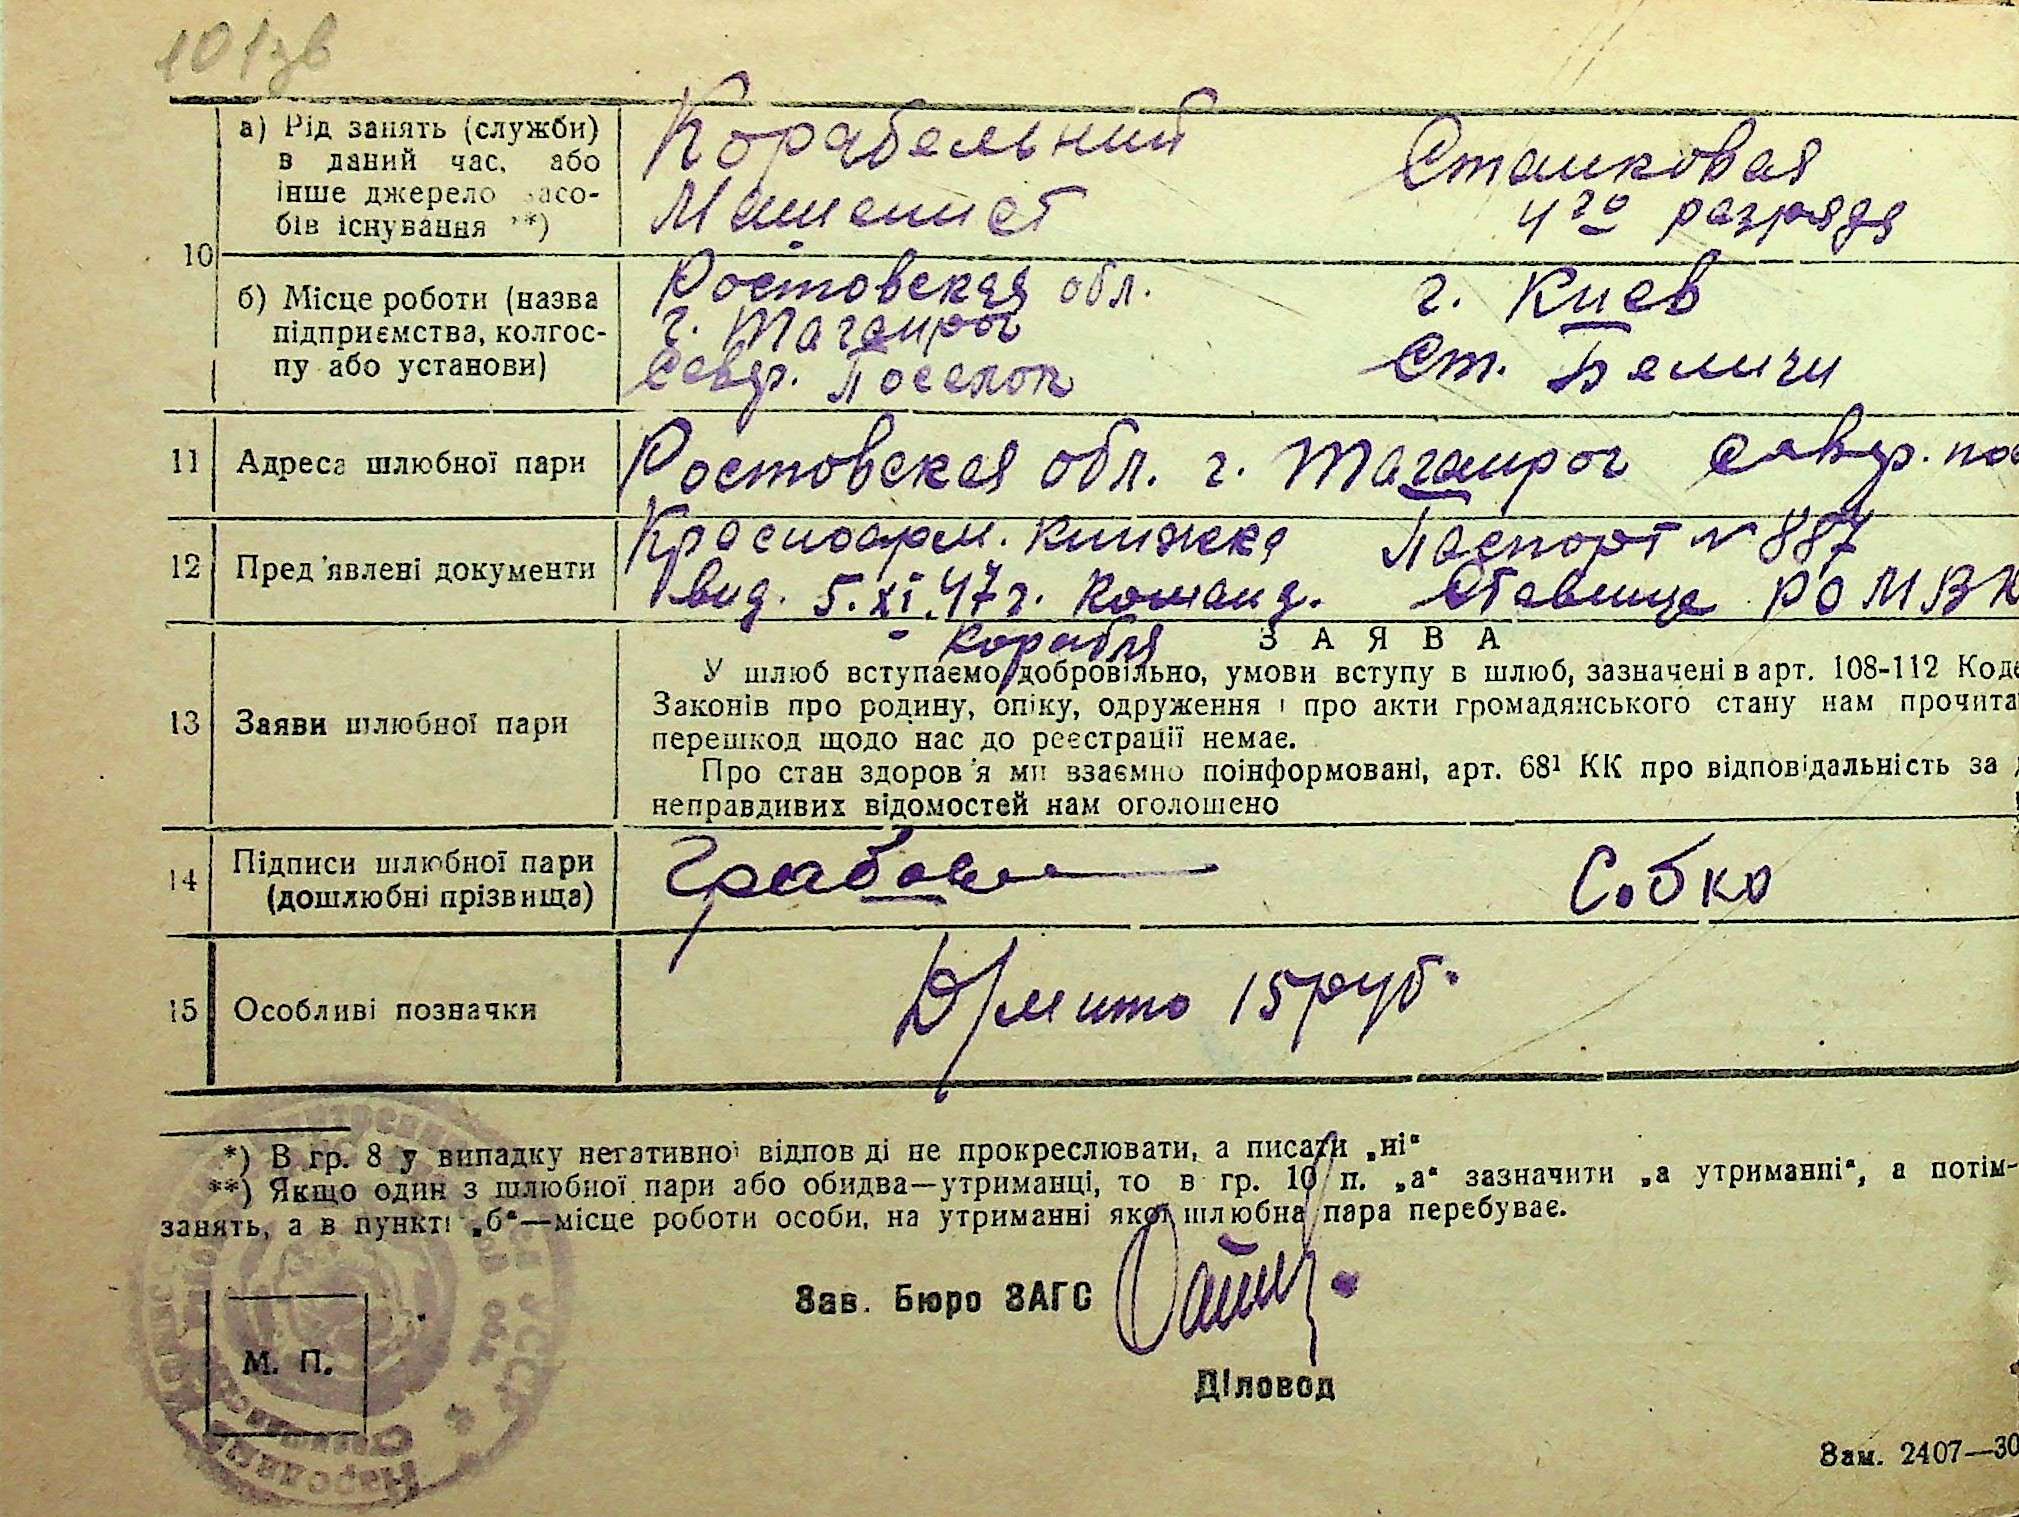 101зв
а) Рід занять (служби) в даний час, або інше джерело засобів існування **)
Корабельний
Машинист
Станковая
4го разряда
10
б) Місце роботи (назва підприємства, колгоспу або установи)
Ростовская обл.
г. Таганрог
Севр. Поселок
г. Киев
Ст. Беличи
11 Адреса шлюбної пари
Ростовская обл. г. Таганрог Севр. пос
12 Пред'явлені документи
Красноарм. книжка
вид. 5.XI.47г. Команд.
корабля
Паспорт № 887
Ставище РО МВ
ЗАЯВА
13 Заяви шлюбної пари
У шлюб вступаємо добровільно, умови вступу в шлюб, зазначені в арт. 108-112 Коде
Законів про родину, опіку, одруження і про акти громадянського стану нам прочита
перешкод щодо нас до реєстрації немає.
Про стан здоров'я ми взаємно поінформовані, арт. 68¹ КК про відповідальність за
неправдивих відомостей нам оголошено
14 Підписи шлюбної пари
(дошлюбні прізвища)
С.бко
15 Особливі позначки
Д/мито 15 руб.
*) В гр. 8 у випадку негативної відповіді не прокреслювати, а писати „ні“
**) Якщо один з шлюбної пари або обидва—утриманці, то в гр. 10 п. „а“ зазначити „а утриманні“, а потім-
занять, а в пункті „б“—місце роботи особи, на утриманні якої шлюбна пара перебуває.
Зав. Бюро ЗАГС
М. П.
Діловод
Зам. 2407—30